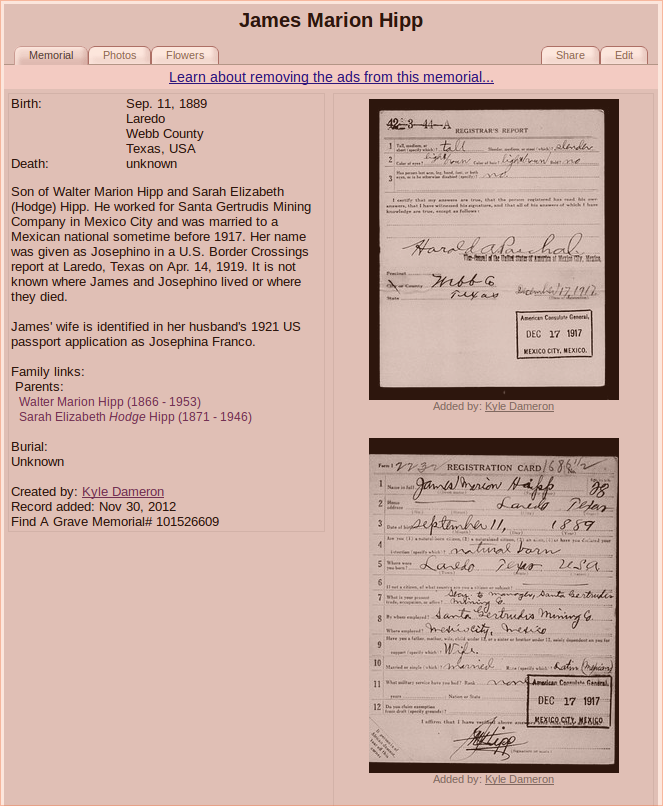 James Marion Hipp
Memorial
Photos
Flowers
Share
Edit
Learn about removing the ads from this memorial...
Birth: Sep. 11, 1889
Laredo
Webb County
Texas, USA
Death: unknown
Son of Walter Marion Hipp and Sarah Elizabeth
(Hodge) Hipp. He worked for Santa Gertrudis Mining
Company in Mexico City and was married to a
Mexican national sometime before 1917. Her name
was given as Josephino in a U.S. Border Crossings
report at Laredo, Texas on Apr. 14, 1919. It is not
known where James and Josephino lived or where
they died.
James' wife is identified in her husband's 1921 US
passport application as Josephina Franco.
Family links:
Parents:
Walter Marion Hipp (1866 - 1953)
Sarah Elizabeth Hodge Hipp (1871 - 1946)
Burial:
Unknown
Created by: Kyle Dameron
Record added: Nov 30, 2012
Find A Grave Memorial# 101526609
42-3-44-A
REGISTRAR'S REPORT
1 tall slender
2 light brown light brown no
3 no.
I certify that my answers are true, that the person registered has read his own
answers, that I have witnessed his signature, and that all of his answers of which I have
knowledge are true, except as follows:
Harold A Paschal
of the United States of America at Mexico City, Mexico.
Precinct
City or County Webb Co
State Texas December 17, 1917
American Consulate General,
DEC 17 1917
MEXICO CITY, MEXICO.
Added by: Kyle Dameron
Form 1 REGISTRATION CARD No.
1 Name in full James Marion Hipp 28
2 Home address Laredo Texas
3 Date of birth September 11, 1889
4 Are you (1) a natural-born citizen, (2) a naturalized citizen, (3) an alien, (4) or have you declared your
intention (specify which)? natural born
5 Where were you born? Laredo Texas USA
6 If not a citizen, of what country are you a citizen or subject?
7 What is your present trade, occupation, or office? to manager, Santa Gertrudis
Mining Co.
8 By whom employed? Santa Gertrudis Mining Co.
Where employed? Mexico city, Mexico
9 Have you a father, mother, wife, child under 12, or a sister or brother under 12, solely dependent on you for
support (specify which)? Wife.
10 Married or single (which)? married Race (specify which)? Latin (Mexican)
11 What military service have you had? Rank none
years Nation or State
American Consulate General,
DEC 17 1917
MEXICO CITY, MEXICO
12 Do you claim exemption from draft (specify grounds)?
I affirm that I have verified above answers
Hipp
Added by: Kyle Dameron